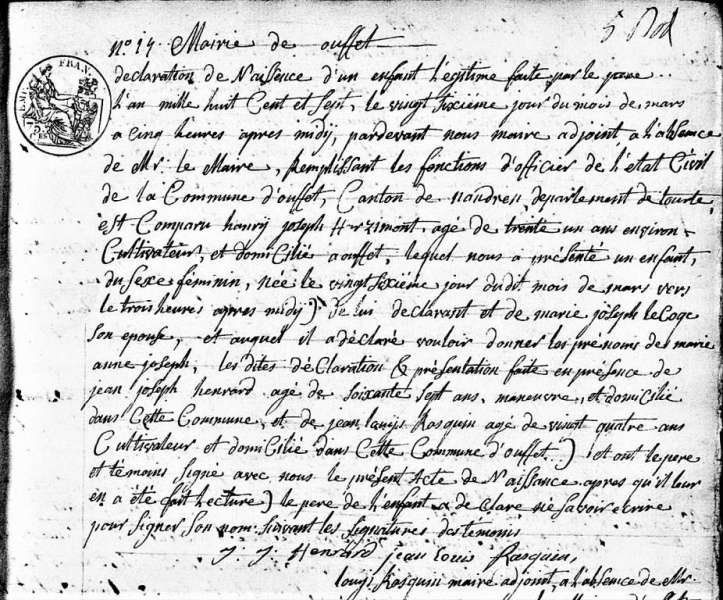 5 Rol
n.º 14 Mairie de ouffet
FRAN
declaration de Naissence d'un enfant légitime faite par le pere
l'an mille huit Cent et Sept, le vingt Sixième jour du mois de mars
a Cinq heures apres midÿ, pardevant nous maire adjoint a l'absence
de Mr. le Maire, Remplissant les fonctions d'officier de l'etat Civil
de la Commune d'ouffet, Canton de nandren, departement de l'ourte,
est Comparu hanrÿ joseph agé de trente un ans environ
Cultivateur, et domicilié a ouffet, lequel nous a présenté un enfant,
du Sexe féminin, née le vingt Sixiéme jour dudit mois de mars vers
le trois heures apres midÿ) de lui declarant et de marie joseph leCoge
Son epouse, et auquel il a déclaré vouloir donner les prénoms de marie
anne joseph, les dites déClaration & présentation faite en présence de
jean joseph henrard agé de Soixante Sept ans, maneuvre, et domicilié
dans Cette Commune, et de jean Rasquin agé de vingt quatre ans
Cultivateur et domicilié dans Cette Commune d'ouffet) et ont le pere
et témoins Signé avec nous le présent Acte de Naissance apres qu'il leur
en a été fait lecture) le pere de l'enfant a de Clare ne Savoir ecrire
pour Signer Son nom Suivant les Signatures des temoins
J J Henrard jean louis Rasquin,
Rasquin maire adjoint, a l'absence de Mr.